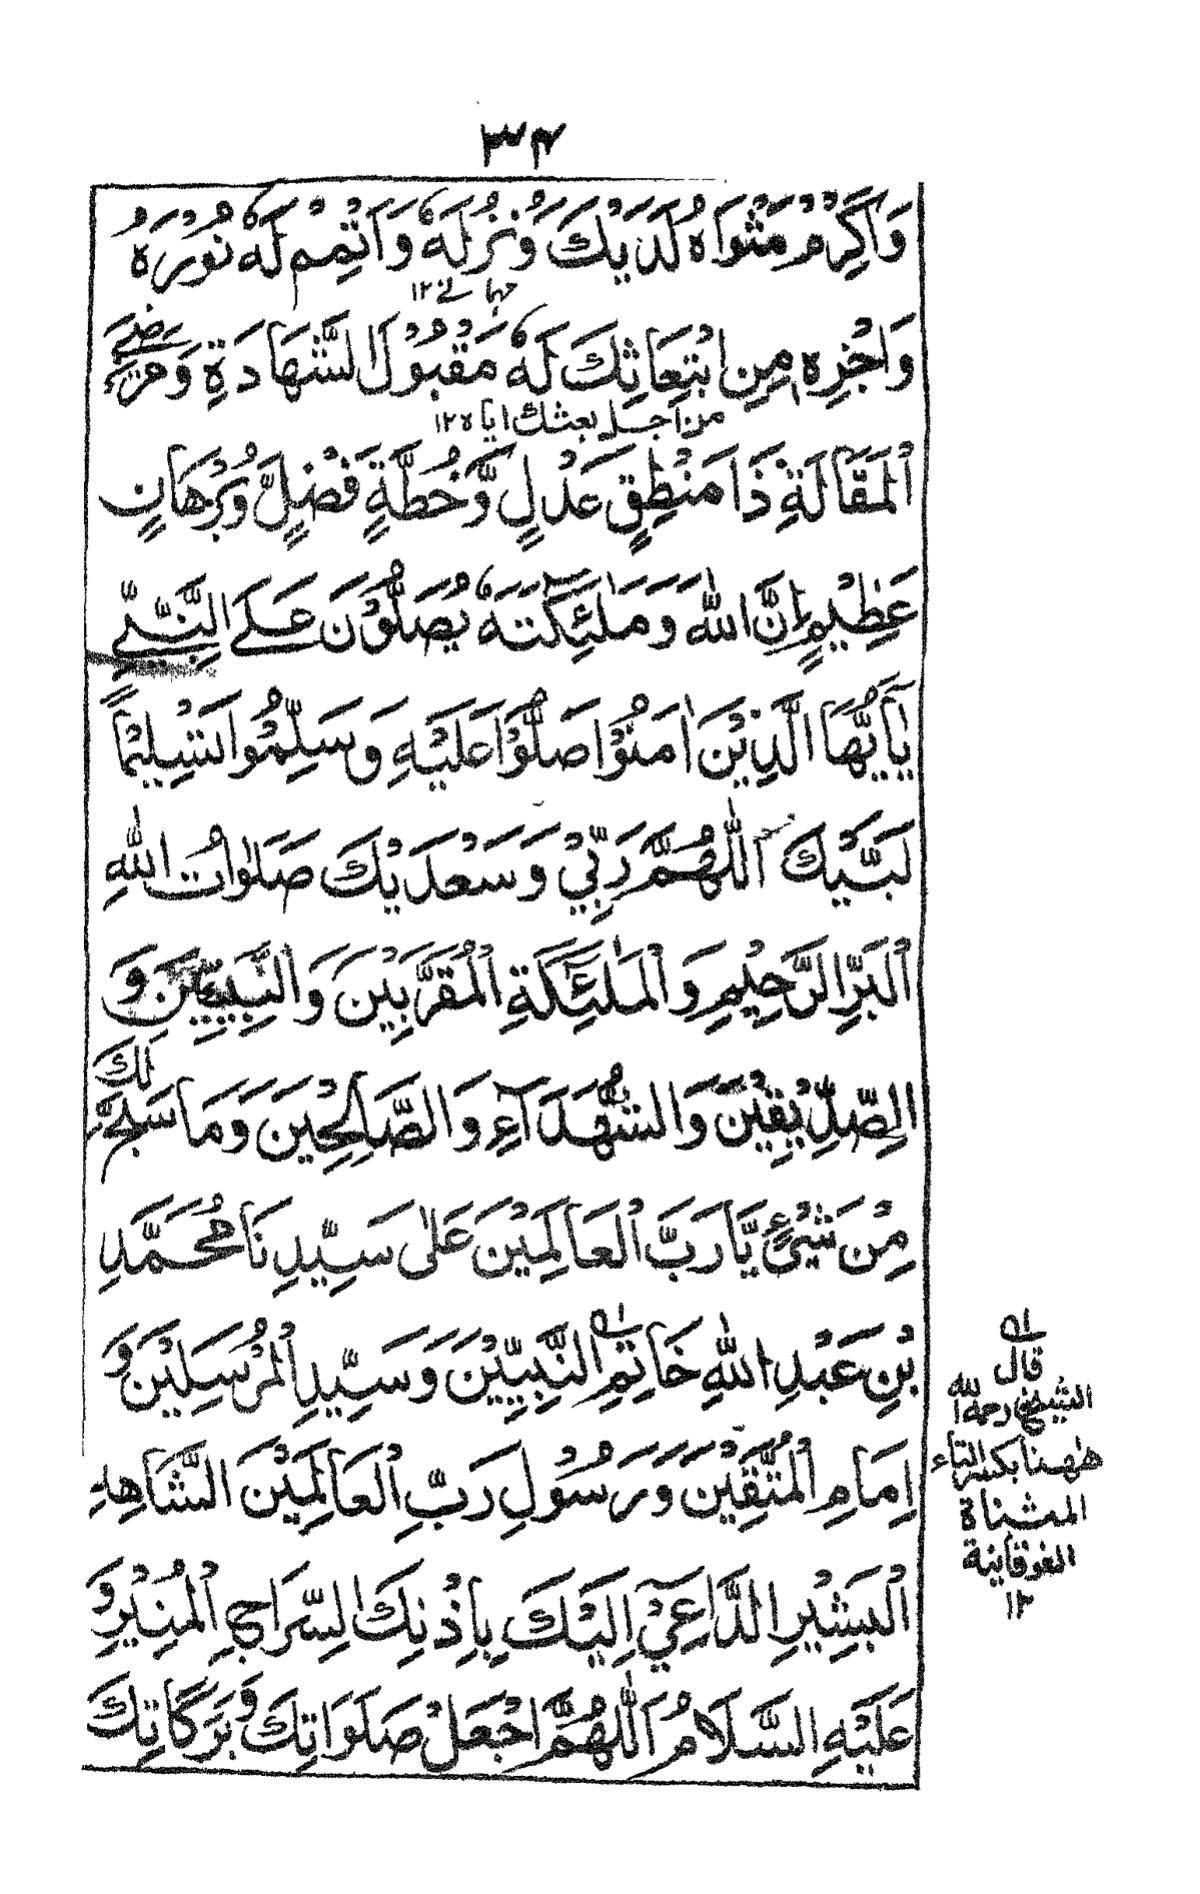 ٣٤
وَاَكْرِمْ مَثْوَاهُ لَدَيْكَ وَنُزُلَهٗ وَاَتْمِمْ لَهٗ نُوْرَهُ
وَاجْزِهٖ مِنِ ابْتِعَاثِكَ لَهٗ مَقْبُوْلَ الشَّهَادَةِ وَمَرْضِيَّ
من اجل بعثك اياه ١٢
الْمَقَالَةِ ذَا مَنْطِقٍ عَدْلٍ وَّخُطَّةٍ فَصْلٍ وَّبُرْهَانٍ
عَظِيْمٍ اِنَّ اللّٰهَ وَمَلٰٓئِكَتَهٗ يُصَلُّوْنَ عَلَى النَّبِيِّ
يٰٓاَيُّهَا الَّذِيْنَ اٰمَنُوْا صَلُّوْا عَلَيْهِ وَسَلِّمُوْا تَسْلِيْمًا
لَبَّيْكَ اَللّٰهُمَّ رَبِّيْ وَسَعْدَيْكَ صَلَوٰاتُ اللّٰهِ
الْبَرِّ الرَّحِيْمِ وَالْمَلٰٓئِكَةِ الْمُقَرَّبِيْنَ وَالنَّبِيِّيْنَ وَ
الصِّدِّيْقِيْنَ وَالشُّهَدَآءِ وَالصَّالِحِيْنَ وَمَا سَبَّحَ لَكَ
مِنْ شَيْءٍ يَّا رَبَّ الْعَالَمِيْنَ عَلٰى سَيِّدِنَا مُحَمَّدِ
بْنِ عَبْدِ اللّٰهِ خَاتِمِ النَّبِيِّيْنَ وَسَيِّدِ الْمُرْسَلِيْنَ وَ
اِمَامِ الْمُتَّقِيْنَ وَرَسُوْلِ رَبِّ الْعَالَمِيْنَ الشَّاهِدِ
الْبَشِيْرِ الدَّاعِيْ اِلَيْكَ بِاِذْنِكَ السِّرَاجِ الْمُنِيْرِ وَ
عَلَيْهِ السَّلَامُ اَللّٰهُمَّ اجْعَلْ صَلَوَاتِكَ وَبَرَكَاتِكَ
قال
الشيخ رحمه الله
ههنا بكسر التاء
المثناة
الفوقانية
١٢